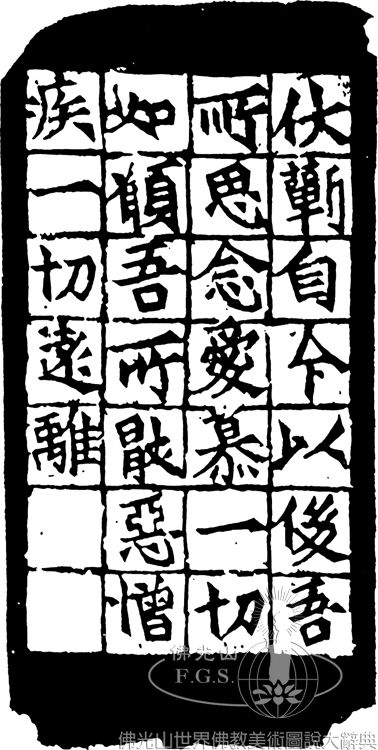 伏蘄自今以後吾
所思念愛慕一切
如願吾所厭惡憎
疾一切遠離
佛光山
F.G.S.
佛光山世界佛教美術圖說大辭典